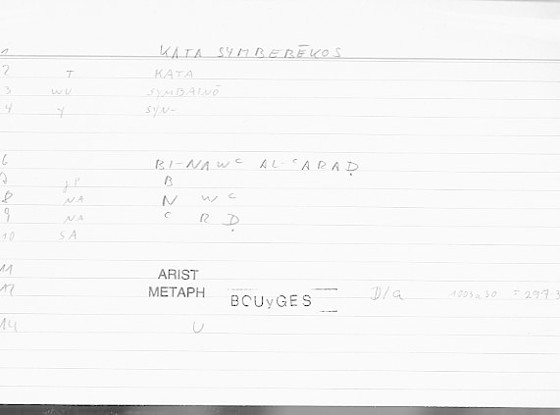 1 KATA SYMBEBĒKOS
2 T KATA
3 WV SYMBAINŌ
4 Y SYN-
6 BI-NAWʿ AL-ʿARAḌ
B
8 NA N W ʿ
9 NA ʿ R Ḍ
10 SA
11 ARIST
12 METAPH BOUyGES D/a
14 U